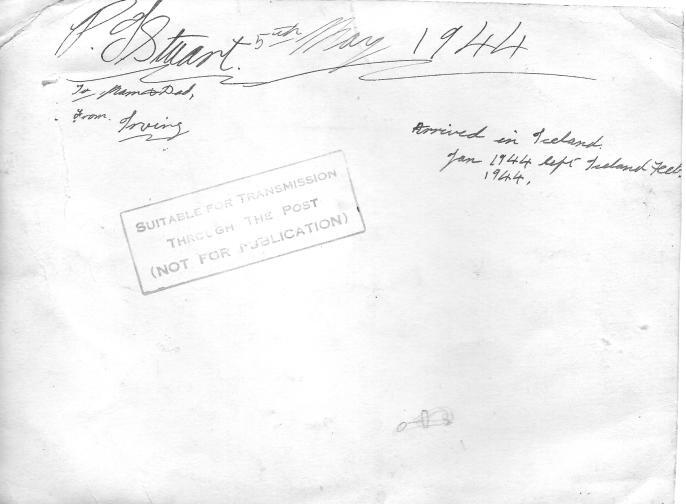 P. J. Stuart. 5th May 1944
To Mam & Dad,
From. Irving
Arrived in Iceland.
Jan 1944 left Iceland Feb.
1944.
SUITABLE FOR TRANSMISSION
THROUGH THE POST
(NOT FOR PUBLICATION)